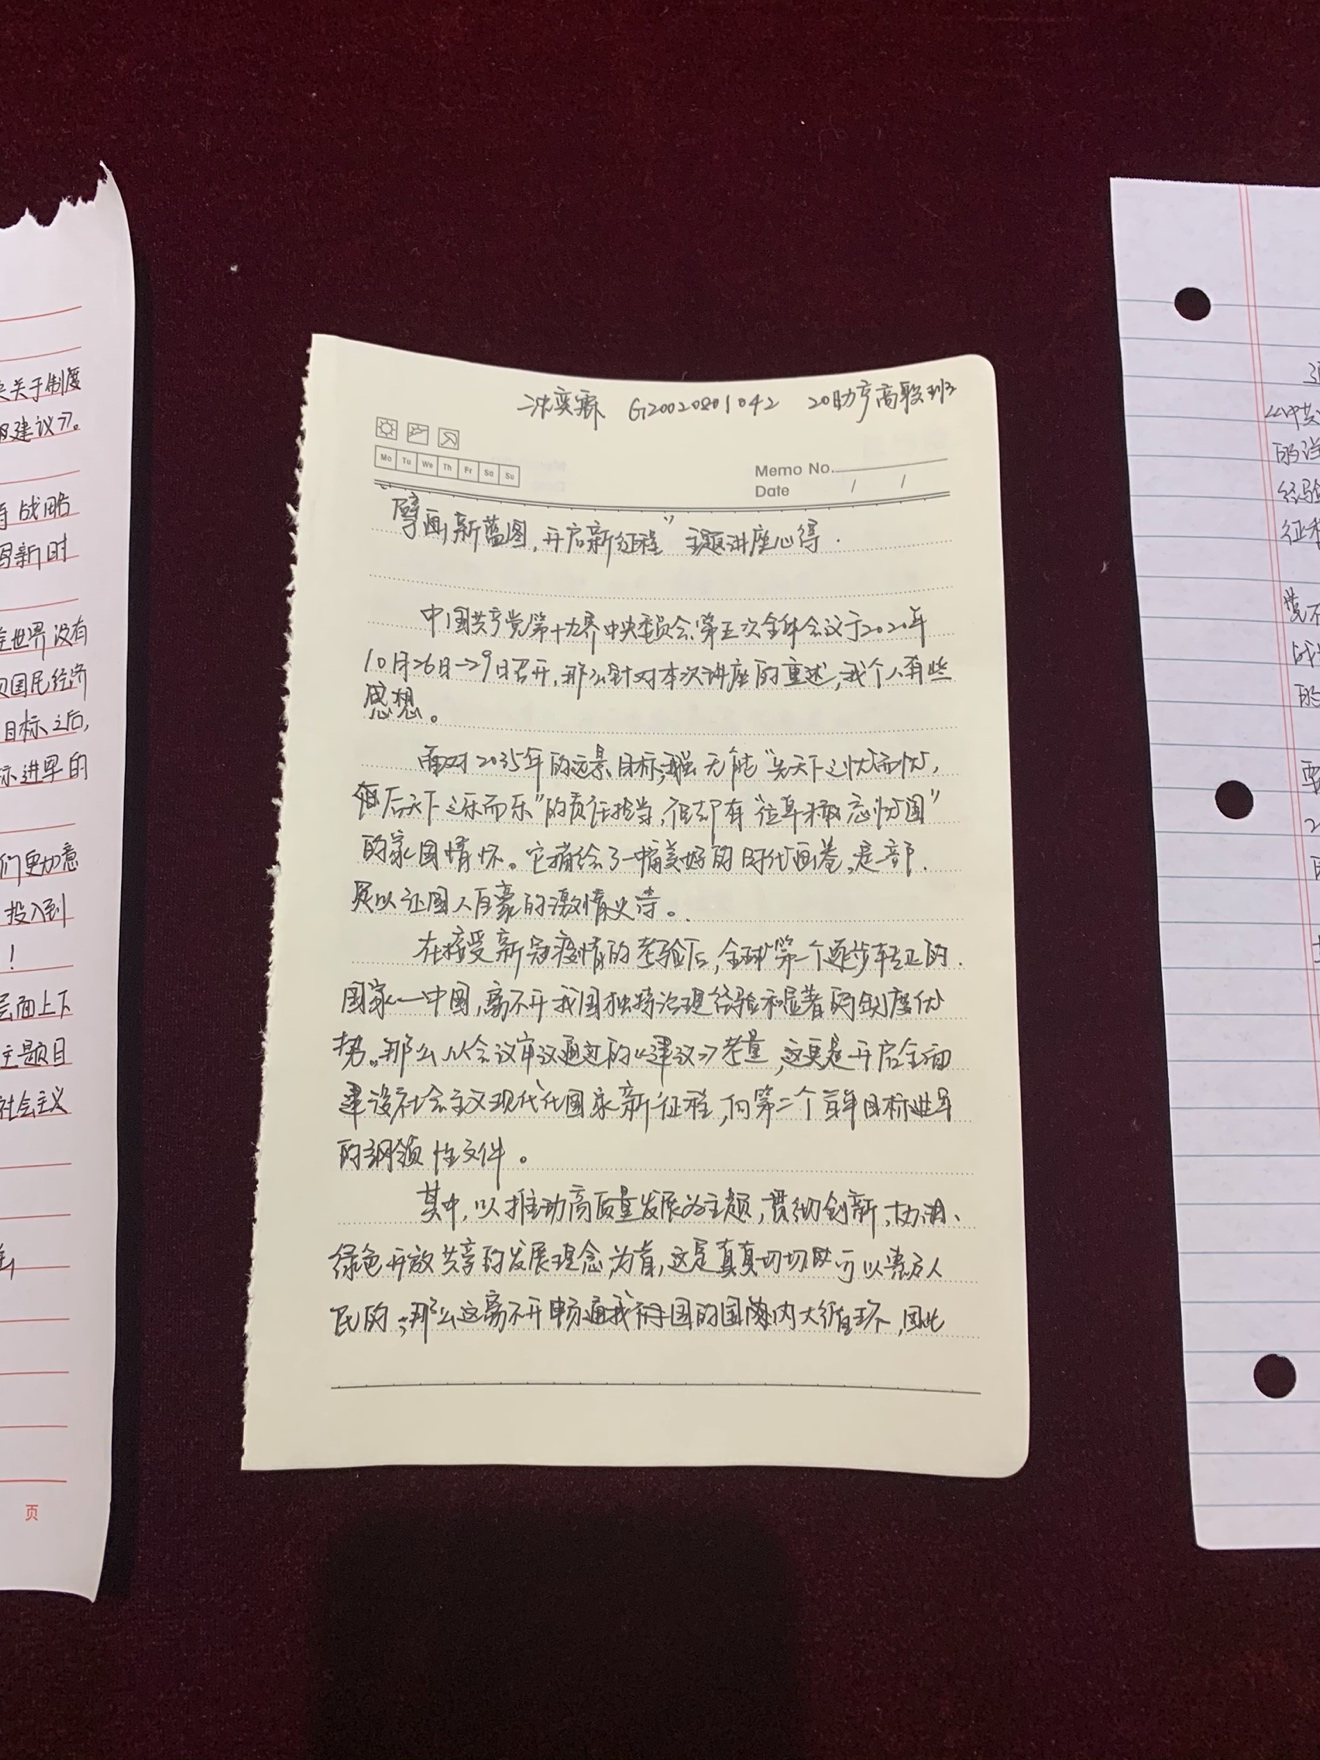 关于制度
建议》。
战略
新时
世界没有
国民经济
目标之后,
进军的
们更加意
投入到
!
层面上下
主题目
社会主义
页
沈奕霖 G2002801042 20助产高职班
Mo Tu We Th Fr Sa Su
Memo No.
Date / /
“擘画新蓝图,开启新征程”主题讲座心得.
中国共产党第十九届中央委员会第五次全体会议于2020年
10月26日-29日召开,那么针对本次讲座的重述,我个人有些
感想。
面对2035年的远景目标,我虽无能“先天下之忧而忧,
后天下之乐而乐”的责任担当,但却有“位卑未敢忘忧国”
的家国情怀。它描绘了一幅美好的时代画卷,是一部
足以让国人自豪的激情史诗。
在接受新冠疫情的考验后,全球第一个逐步转正的
国家—中国,离不开我国独特治理经验和显著的制度优
势。那么从会议审议通过的《建议》考量,这更是开启全面
建设社会主义现代化国家新征程,向第二个百年目标进军
的纲领性文件。
其中,以推动高质量发展为主题,贯彻创新、协调、
绿色开放共享的发展理念为首,这是真真切切可以惠及人
民的;那么这离不开畅通我国的国内大循环,因此